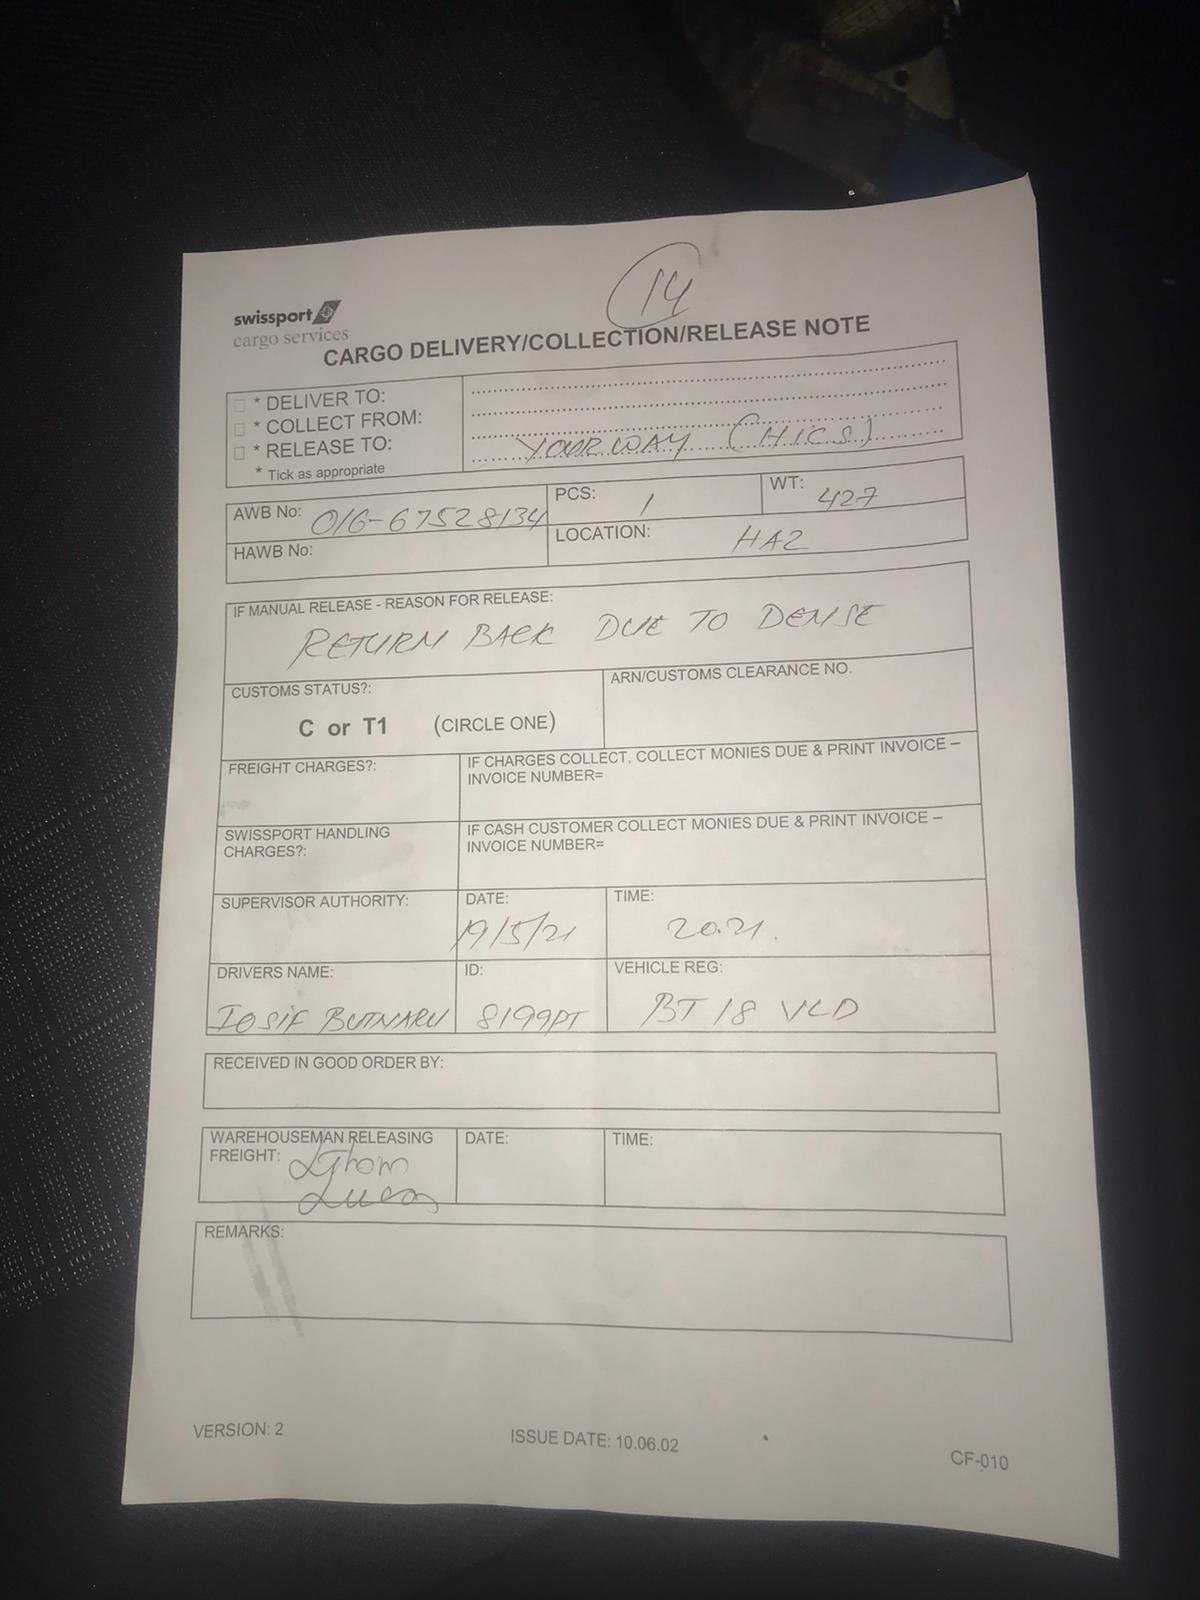 14
swissport
cargo services
CARGO DELIVERY/COLLECTION/RELEASE NOTE
* DELIVER TO:
* COLLECT FROM:
* RELEASE TO:
* Tick as appropriate
YOURWAY (HICS)
AWB No: 016-67528134
PCS: 1
WT: 427
HAWB No:
LOCATION: HA2
IF MANUAL RELEASE - REASON FOR RELEASE:
RETURN BACK DUE TO DENSE
CUSTOMS STATUS?:
C or T1 (CIRCLE ONE)
ARN/CUSTOMS CLEARANCE NO.
FREIGHT CHARGES?:
IF CHARGES COLLECT, COLLECT MONIES DUE & PRINT INVOICE –
INVOICE NUMBER=
SWISSPORT HANDLING
CHARGES?:
IF CASH CUSTOMER COLLECT MONIES DUE & PRINT INVOICE –
INVOICE NUMBER=
SUPERVISOR AUTHORITY:
DATE:
19/5/21
TIME:
20.21.
DRIVERS NAME:
IOSIF BUTNARU
ID:
8199PT
VEHICLE REG:
BT 18 VLD
RECEIVED IN GOOD ORDER BY:
WAREHOUSEMAN RELEASING
FREIGHT:
DATE:
TIME:
REMARKS:
VERSION: 2
ISSUE DATE: 10.06.02
CF-010